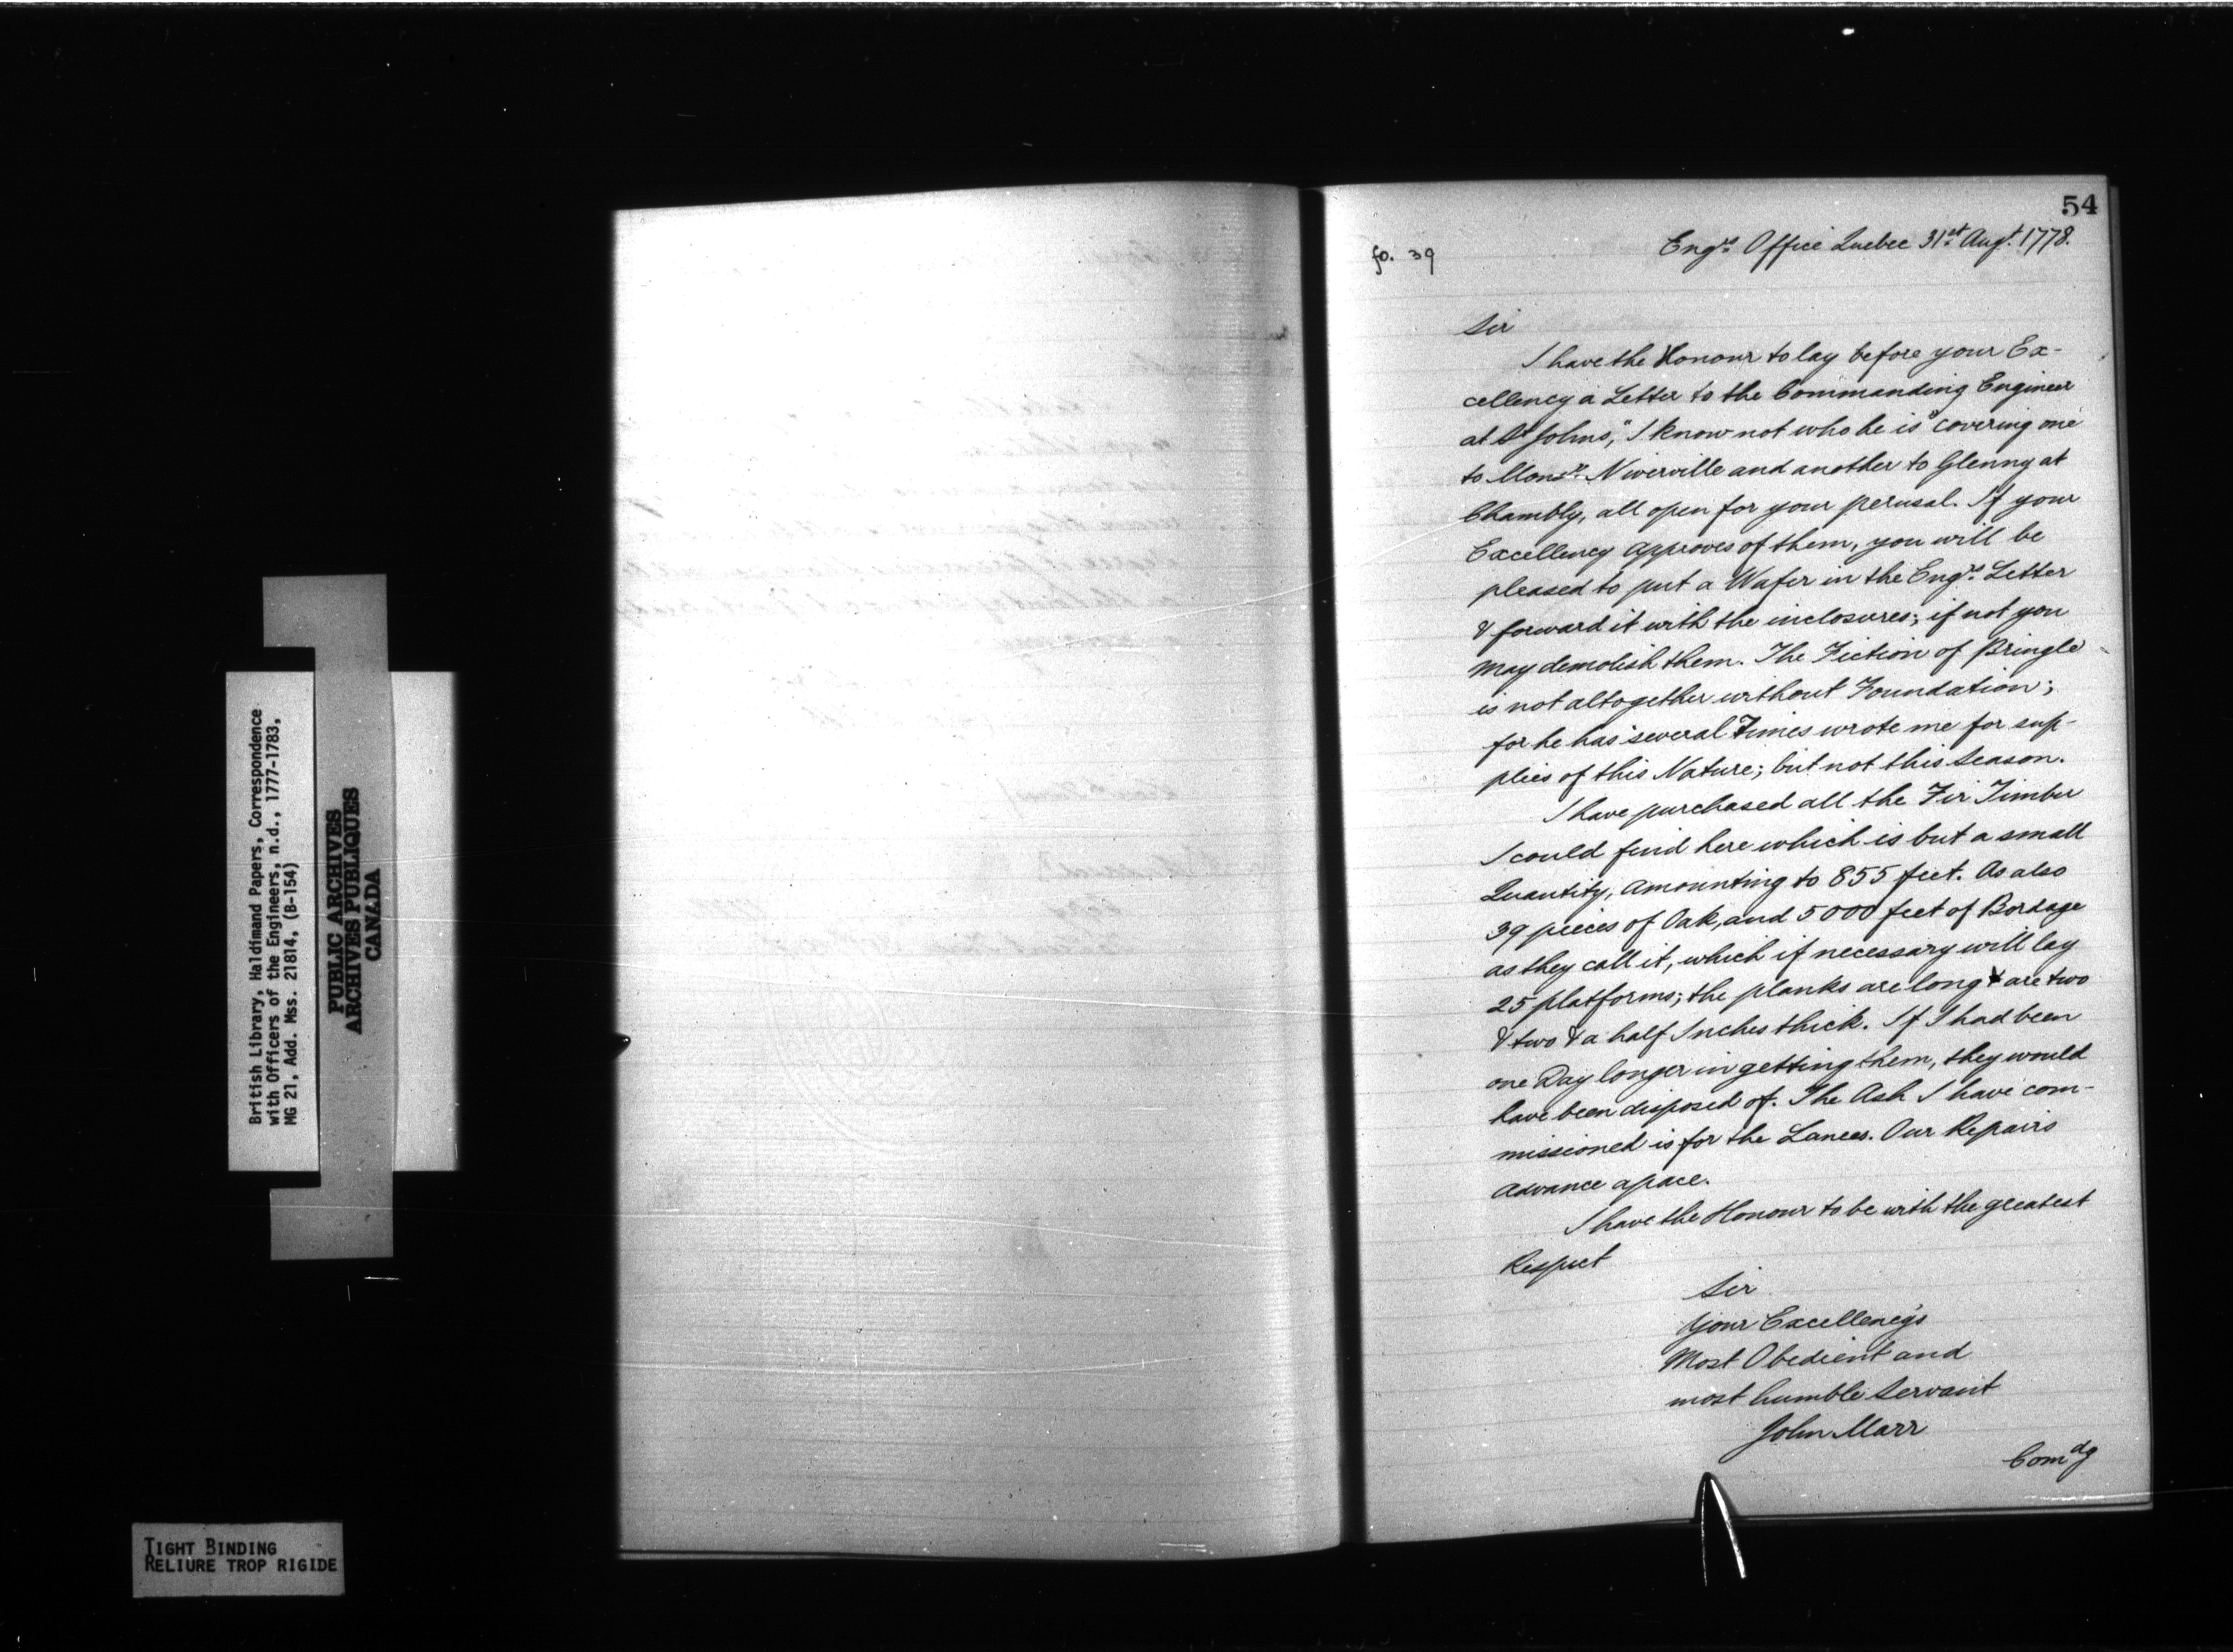 54
fo. 39
Engrs. Office Quebec 31st Augt. 1778.
Sir
I have the Honour to lay before your Ex-
cellency a Letter to the Commanding Engineer
at St Johns, "I know not who he is" covering one
to Monsr. Niverville and another to Glenny at
Chambly, all open for your perusal. If your
Excellency approves of them, you will be
pleased to put a Wafer in the Engrs. Letter
& forward it with the inclosures; if not you
may demolish them. The Fiction of Pringle
is not altogether without Foundation;
for he has several Times wrote me for sup-
plies of this Nature; but not this Season.
I have purchased all the Fir Timber
I could find here which is but a small
Quantity, amounting to 855 feet. As also
39 pieces of Oak, and 5000 feet of Bordage
as they call it, which if necessary will lay
25 platforms; the planks are long & are two
& two & a half Inches thick. If I had been
one Day longer in getting them, they would
have been disposed of. The Ash I have com-
missioned is for the Lances. Our Repairs
advance apace.
I have the Honour to be with the greatest
Respect
Sir
Your Excellency's
Most Obedient and
most humble Servant
John Marr
Comdg
British Library, Haldimand Papers, Correspondence
with Officers of the Engineers, n.d., 1777-1783,
MG 21, Add. Mss. 21814, (B-154)
PUBLIC ARCHIVES
ARCHIVES PUBLIQUES
CANADA
TIGHT BINDING
RELIURE TROP RIGIDE